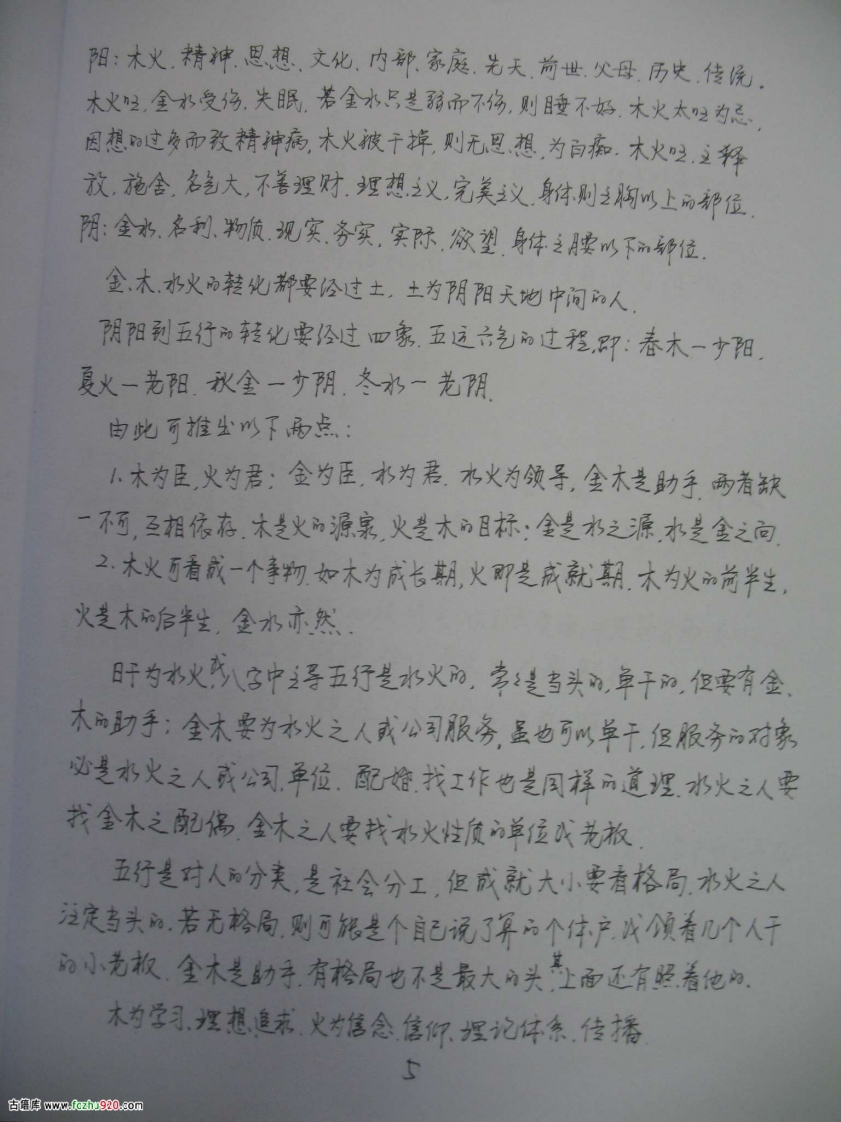 阳:木火.精神.思想.文化.内部.家庭.先天.前世.父母.历史.传统。
木火旺.金水受伤.失眠.若金水只是弱而不伤,则睡不好.木火太旺为忌,
因想的过多而致精神病,木火被干掉,则无思想,为白痴.木火旺.主释
放,施舍,名气大,不善理财.理想主义,完美主义.身体则主胸以上的部位.
阴:金水.名利.物质.现实.务实,实际.欲望.身体主腰以下的部位.
金.木.水火的转化都要经过土.土为阴阳天地中间的人.
阴阳到五行的转化要经过四象.五运六气的过程,即:春木一少阳.
夏火一老阳.秋金一少阴.冬水一老阴.
由此可推出以下两点:
1.木为臣,火为君;金为臣,水为君.水火为领导,金木是助手.两者缺
一不可,互相依存.木是火的源泉,火是木的目标;金是水之源,水是金之向.
2.木火可看成一个事物.如木为成长期,火即是成就期.木为火的前半生,
火是木的后半生.金水亦然.
日干为水火或八字中主导五行是水火的,常常是当头的,单干的,但要有金.
木的助手;金木要为水火之人或公司服务,虽也可以单干,但服务的对象
必是水火之人或公司.单位.配婚.找工作也是同样的道理.水火之人要
找金木之配偶.金木之人要找水火性质的单位或老板.
五行是对人的分类,是社会分工,但成就大小要看格局.水火之人
注定当头的.若无格局.则可能是个自己说了算的个体户.或领着几个人干
的小老板.金木是助手.有格局也不是最大的头,其上面还有照着他的.
木为学习.理想.追求.火为信念.信仰.理论体系.传播.
5
古籍库 www.fczhu920.com